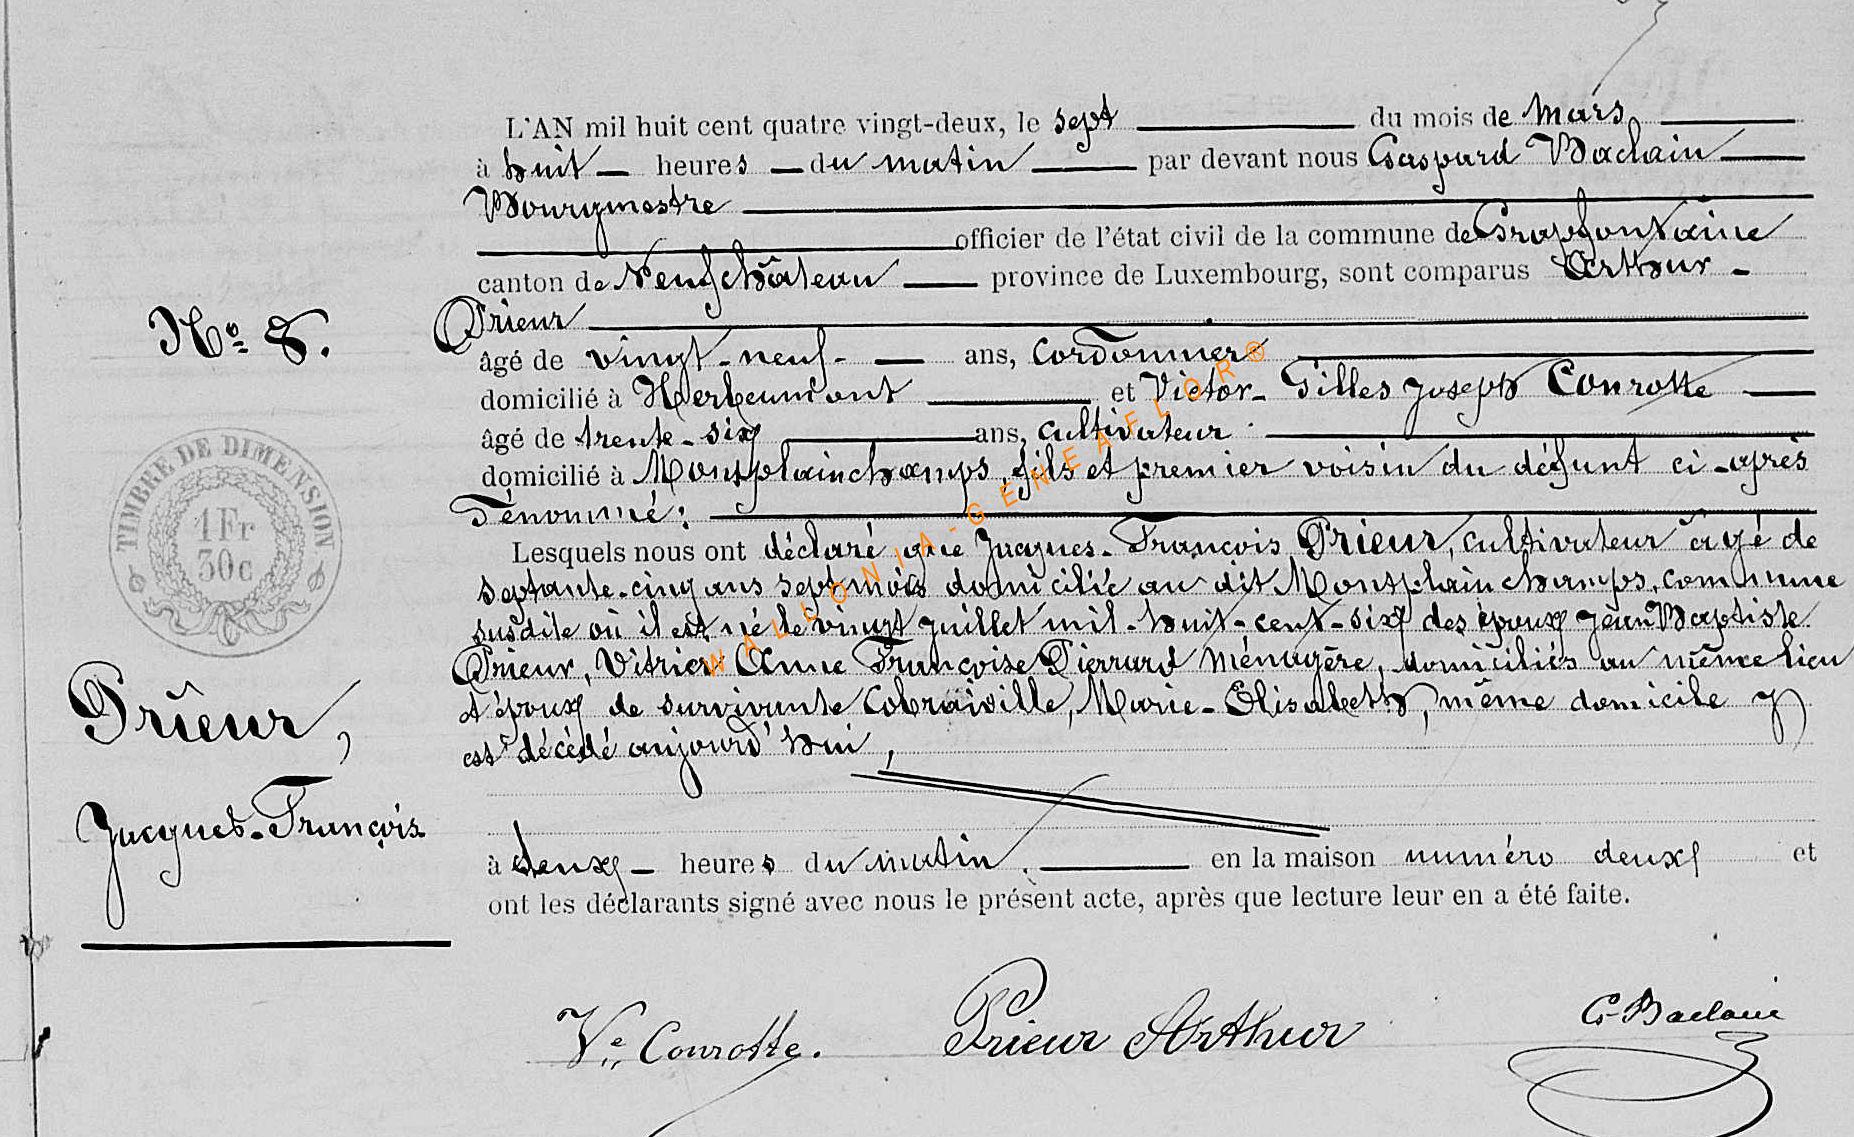 L'AN mil huit cent quatre vingt-deux, le sept du mois de Mars
à huit heures du matin par devant nous Gaspard Baclain
Bourgmestre
officier de l'état civil de la commune de Grapfontaine
canton de Neufchâteau province de Luxembourg, sont comparus Arthur
Prieur
âgé de vingt-neuf ans, cordonnier
domicilié à Herbeumont et Victor-Gilles Joseph Conrotte
âgé de trente-six ans, cultivateur
domicilié à Montplainchamps, fils et premier voisin du défunt ci-après
dénommé :
Lesquels nous ont déclaré que Jacques-François Prieur, cultivateur âgé de
septante-cinq ans sept mois domicilié au dit Montplainchamps, commune
susdite où il est né le vingt Juillet mil-huit-cent-six des époux Jean Baptiste
Prieur, Vitrier Anne Françoise Pierrard Ménagère, domiciliés au même lieu
et époux de survivante Colraiville, Marie-Elisabeth, même domicile y
est décédé aujourd'hui,
à deux heures du matin. en la maison numéro deux et
ont les déclarants signé avec nous le présent acte, après que lecture leur en a été faite.
No 8.
TIMBRE DE DIMENSION
1 Fr
30c
Prieur,
Jacques-François
Vr Conrotte. Prieur Arthur G. Baclain
WALLONIA-GENEAFLOR®